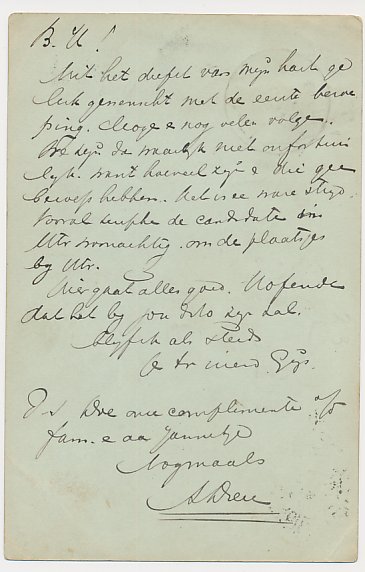 B. H!
Uit het diepst van mijn hart ge
luk gewenscht met de eerste beroe
ping. Moge e nog velen volgen.
We zijn da waarlijk niet onfortuin
lijk. want hoeveel zijn e die gee
beroep hebben. Het is ee ware strijd
Vooral de candidate in
Utr. om de plaatsjes
by Utr.
Hier gaat alles goed. Hopende
dat het by jou ook zijn zal.
Blijf ik als steeds
je vriend Gijs.
P.S. Doe onze complimente
fam. e aa Jannetje
Nogmaals
Adieu